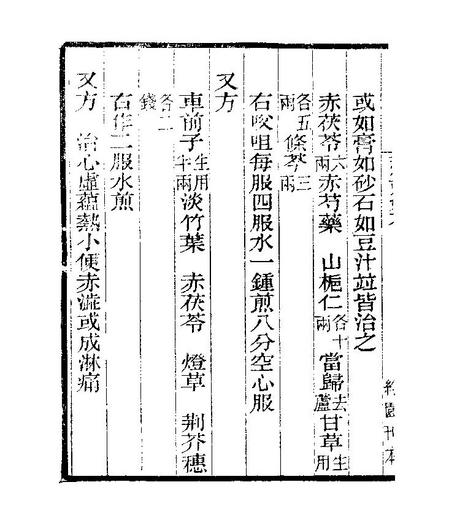 或如膏如砂石如豆汁竝皆治之
赤茯苓六兩赤芍藥 山梔仁各十兩當歸去蘆甘草生用
各五兩條芩三兩
右㕮咀每服四服水一鍾煎八分空心服
又方
車前子生用半兩淡竹葉 赤茯苓 燈草 荆芥穗
各二錢
右作二服水煎
又方 治心虛蘊熱小便赤澁或成淋痛